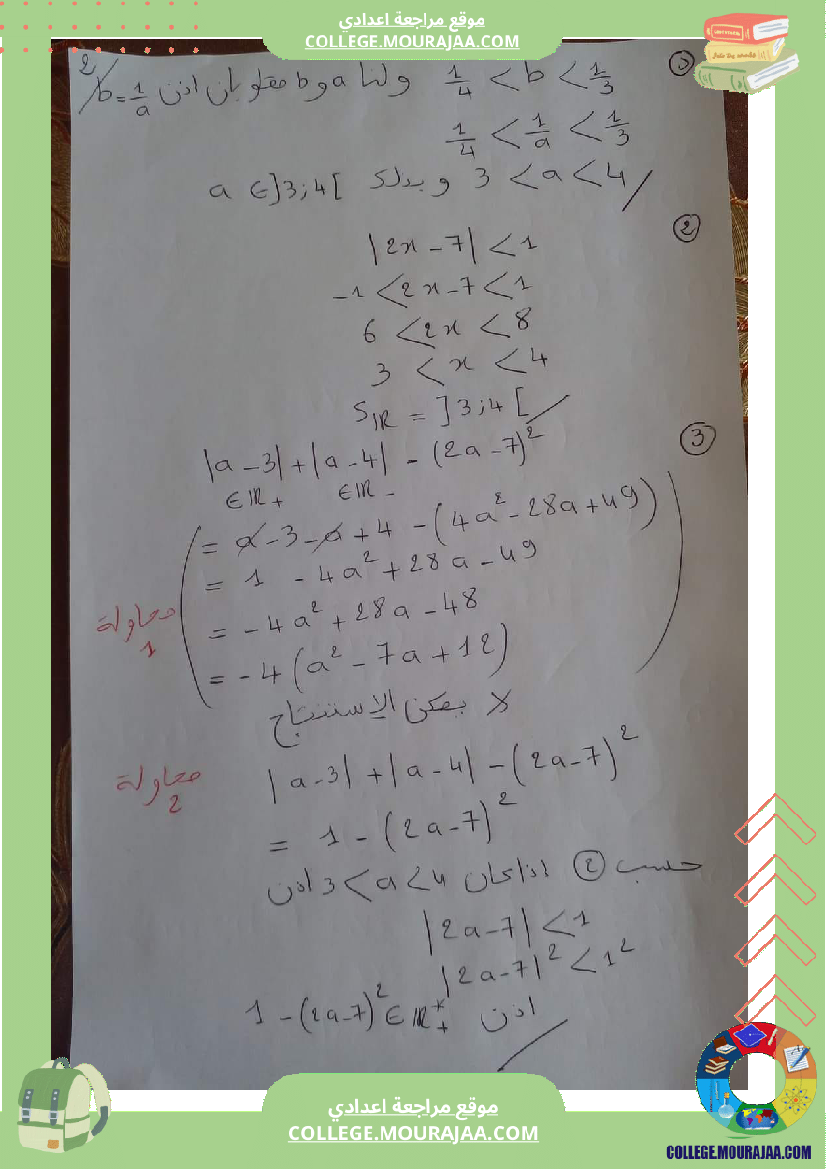 موقع مراجعة اعدادي
COLLEGE.MOURAJAA.COM
2/
① 1/4 < b < 1/3 ولنا a و b مقلوبان اذن b = 1/a
1/4 < 1/a < 1/3
3 < a < 4 وبذلك a ∈ ]3;4[
②
|2x - 7| < 1
-1 < 2x - 7 < 1
6 < 2x < 8
3 < x < 4
S_IR = ]3;4[
③
|a - 3| + |a - 4| - (2a - 7)²
∈ IR+ ∈ IR-
= a - 3 - a + 4 - (4a² - 28a + 49)
= 1 - 4a² + 28a - 49
محاولة 1
= -4a² + 28a - 48
= -4(a² - 7a + 12)
لا يمكن الاستنتاج
محاولة 2
|a - 3| + |a - 4| - (2a - 7)²
= 1 - (2a - 7)²
حسب ② اذا كان 3 < a < 4 اذن
|2a - 7| < 1
|2a - 7|² < 1²
اذن 1 - (2a - 7)² ∈ IR*+
موقع مراجعة اعدادي
COLLEGE.MOURAJAA.COM
COLLEGE.MOURAJAA.COM